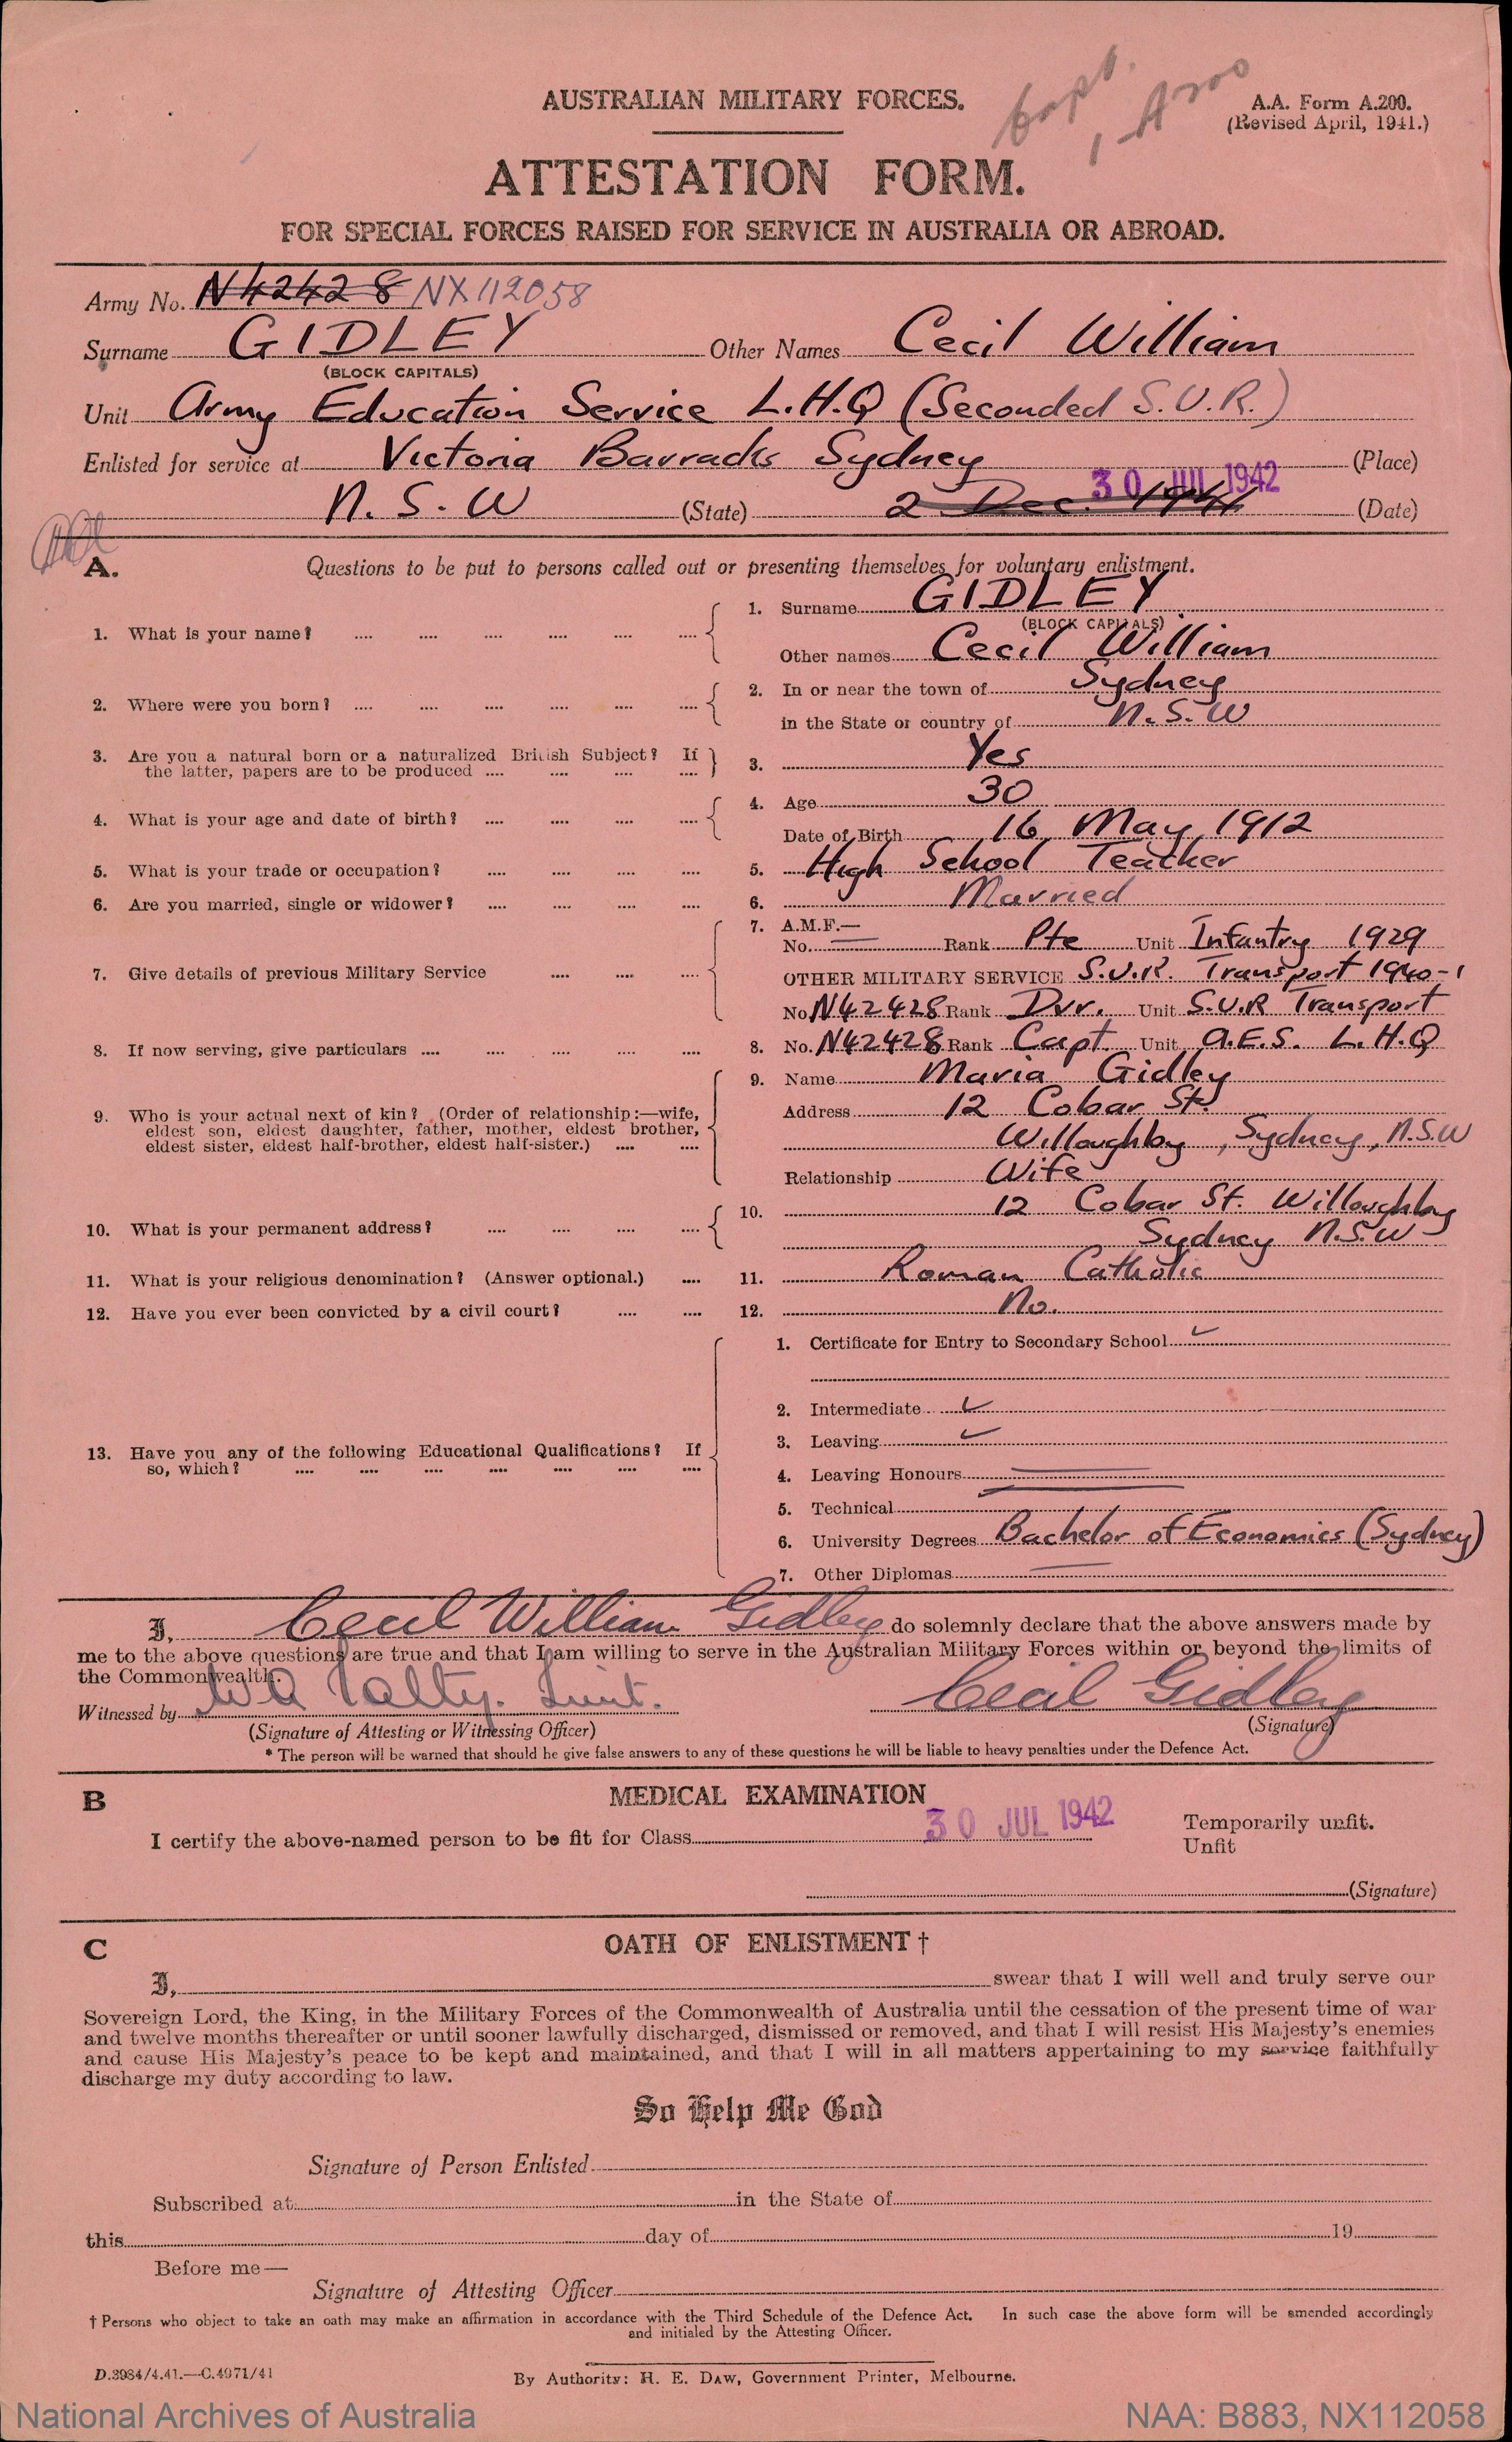 Capt.
1 A200
AUSTRALIAN MILITARY FORCES.
A.A. Form A.200.
(Revised April, 1941.)
ATTESTATION FORM.
FOR SPECIAL FORCES RAISED FOR SERVICE IN AUSTRALIA OR ABROAD.
Army No. N42428 NX112058
Surname GIDLEY Other Names Cecil William
(BLOCK CAPITALS)
Unit Army Education Service L.H.Q (Seconded S.U.R.)
Enlisted for service at Victoria Barracks Sydney (Place)
30 JUL 1942
N.S.W (State) 2 Dec. 1941 (Date)
A. Questions to be put to persons called out or presenting themselves for voluntary enlistment.
1. What is your name? 1. Surname GIDLEY
(BLOCK CAPITALS)
Other names Cecil William
2. Where were you born? 2. In or near the town of Sydney
in the State or country of N.S.W
3. Are you a natural born or a naturalized British Subject? If
the latter, papers are to be produced 3. Yes
4. What is your age and date of birth? 4. Age 30
Date of Birth 16 May 1912
5. What is your trade or occupation? 5. High School Teacher
6. Are you married, single or widower? 6. Married
7. Give details of previous Military Service 7. A.M.F.—
No. — Rank Pte Unit Infantry 1929
OTHER MILITARY SERVICE S.U.R. Transport 1940-1
No. N42428 Rank Dvr. Unit S.U.R Transport
8. If now serving, give particulars 8. No. N42428 Rank Capt. Unit A.E.S. L.H.Q
9. Who is your actual next of kin? (Order of relationship:—wife,
eldest son, eldest daughter, father, mother, eldest brother,
eldest sister, eldest half-brother, eldest half-sister.)
9. Name Maria Gidley
Address 12 Cobar St.
Willoughby, Sydney, N.S.W
Relationship Wife
10. What is your permanent address? 10. 12 Cobar St. Willoughby
Sydney N.S.W
11. What is your religious denomination? (Answer optional.) 11. Roman Catholic
12. Have you ever been convicted by a civil court? 12. No.
13. Have you any of the following Educational Qualifications? If
so, which?
1. Certificate for Entry to Secondary School ✓
2. Intermediate ✓
3. Leaving ✓
4. Leaving Honours —
5. Technical —
6. University Degrees Bachelor of Economics (Sydney)
7. Other Diplomas —
I, Cecil William Gidley do solemnly declare that the above answers made by
me to the above questions are true and that I am willing to serve in the Australian Military Forces within or beyond the limits of
the Commonwealth.
Witnessed by Lieut. Cecil Gidley
(Signature of Attesting or Witnessing Officer) (Signature)
* The person will be warned that should he give false answers to any of these questions he will be liable to heavy penalties under the Defence Act.
B MEDICAL EXAMINATION
I certify the above-named person to be fit for Class 30 JUL 1942 Temporarily unfit.
Unfit
(Signature)
C OATH OF ENLISTMENT †
I, swear that I will well and truly serve our
Sovereign Lord, the King, in the Military Forces of the Commonwealth of Australia until the cessation of the present time of war
and twelve months thereafter or until sooner lawfully discharged, dismissed or removed, and that I will resist His Majesty's enemies
and cause His Majesty's peace to be kept and maintained, and that I will in all matters appertaining to my service faithfully
discharge my duty according to law.
So Help Me God
Signature of Person Enlisted
Subscribed at in the State of
this day of 19
Before me—
Signature of Attesting Officer
† Persons who object to take an oath may make an affirmation in accordance with the Third Schedule of the Defence Act. In such case the above form will be amended accordingly
and initialed by the Attesting Officer.
D.3984/4.41.—C.4971/41
By Authority: H. E. DAW, Government Printer, Melbourne.
National Archives of Australia NAA: B883, NX112058